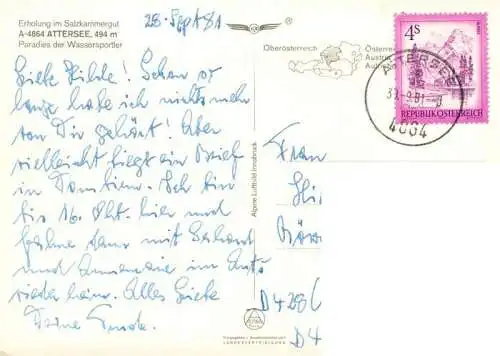 Erholung im Salzkammergut
A-4864 ATTERSEE, 494 m
Paradies der Wassersportler
28. Sept 81
Liebe Hilde! Schon so
lange habe ich nichts mehr
von Dir gehört! Aber
vielleicht liegt ein Brief
in Ich bin
bis 16. Okt. hier und
fahre dann mit Gerhard
und Annemarie im Auto
wieder heim. Alles Liebe
Deine
Alpine Luftbild Innsbruck
Oberösterreich
Österreich
Austria
4S
REPUBLIK ÖSTERREICH
ATTERSEE
4864
Frau
D 428
D 4